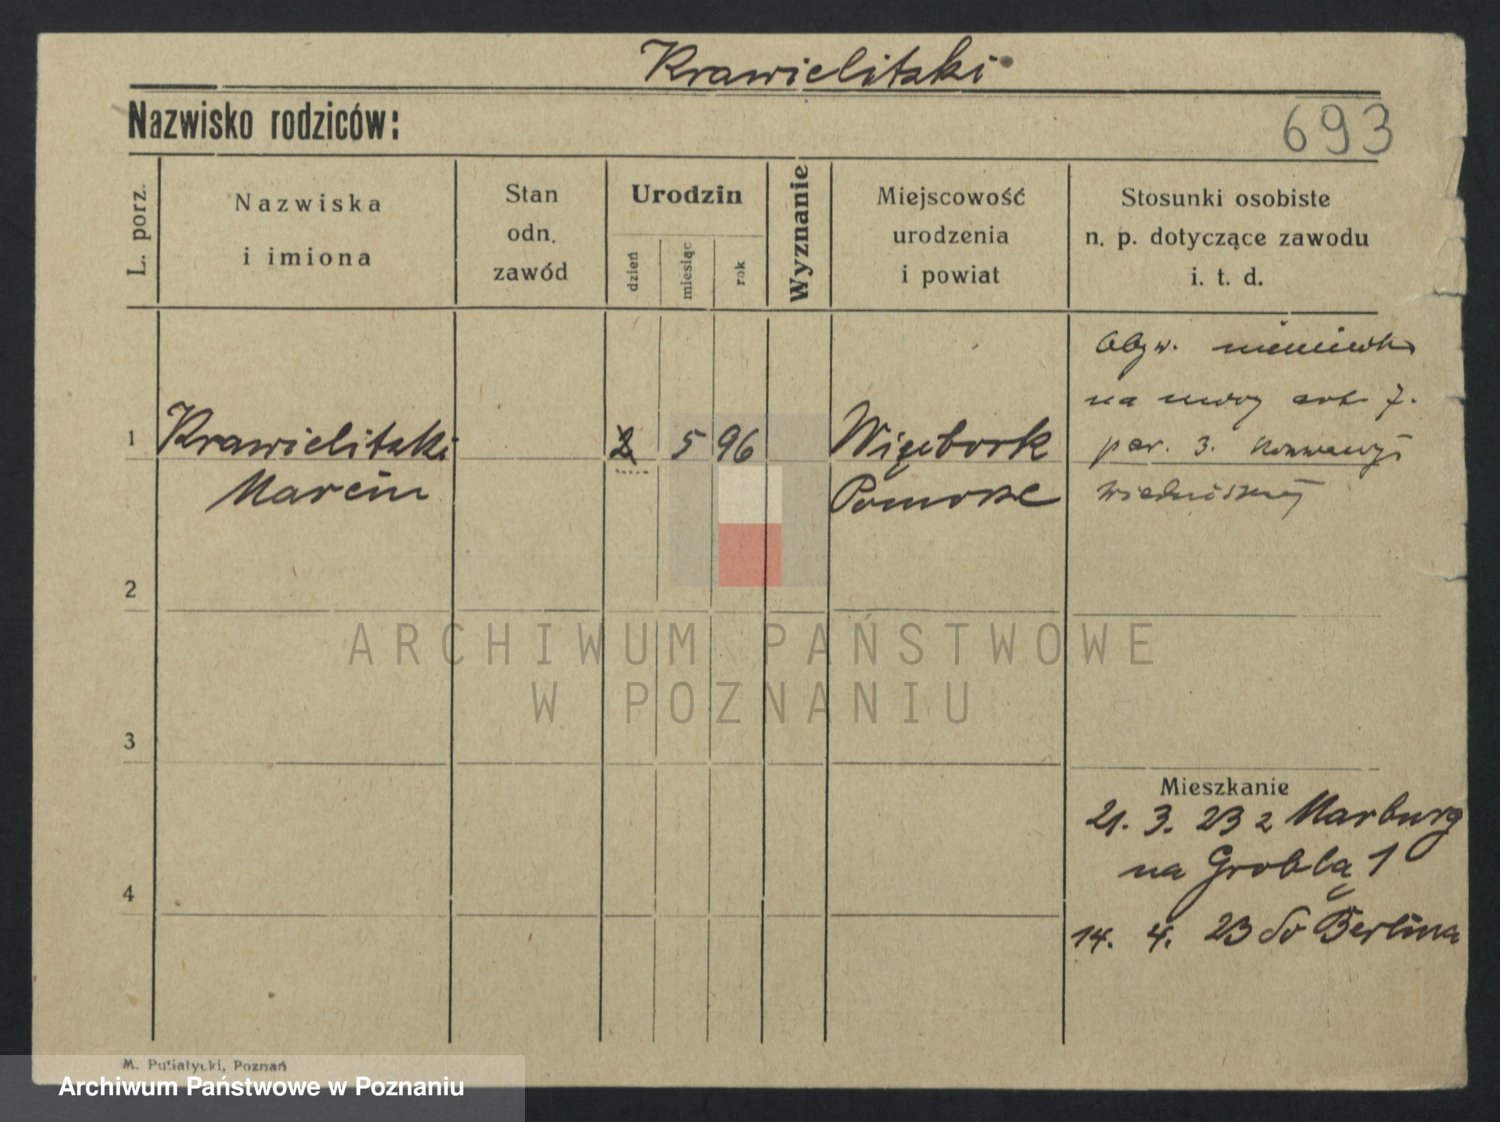 Krawielitzki
Nazwisko rodziców:
693
L. porz.
Nazwiska
i imiona
Stan
odn.
zawód
Urodzin
dzień
miesiąc
rok
Wyznanie
Miejscowość
urodzenia
i powiat
Stosunki osobiste
n. p. dotyczące zawodu
i. t. d.
Obyw. niemiecki
na mocy art. 7.
par. 3. konwencji
wiedeńskiej
1 Krawielitzki 2 5 96 Więcbork
Marcin Pomorze
2
ARCHIWUM PAŃSTWOWE
W POZNANIU
3
Mieszkanie
21. 3. 23 z Marburg
na Groblą 1
4
14. 4. 23 do Berlina
M. Putiatycki, Poznań
Archiwum Państwowe w Poznaniu